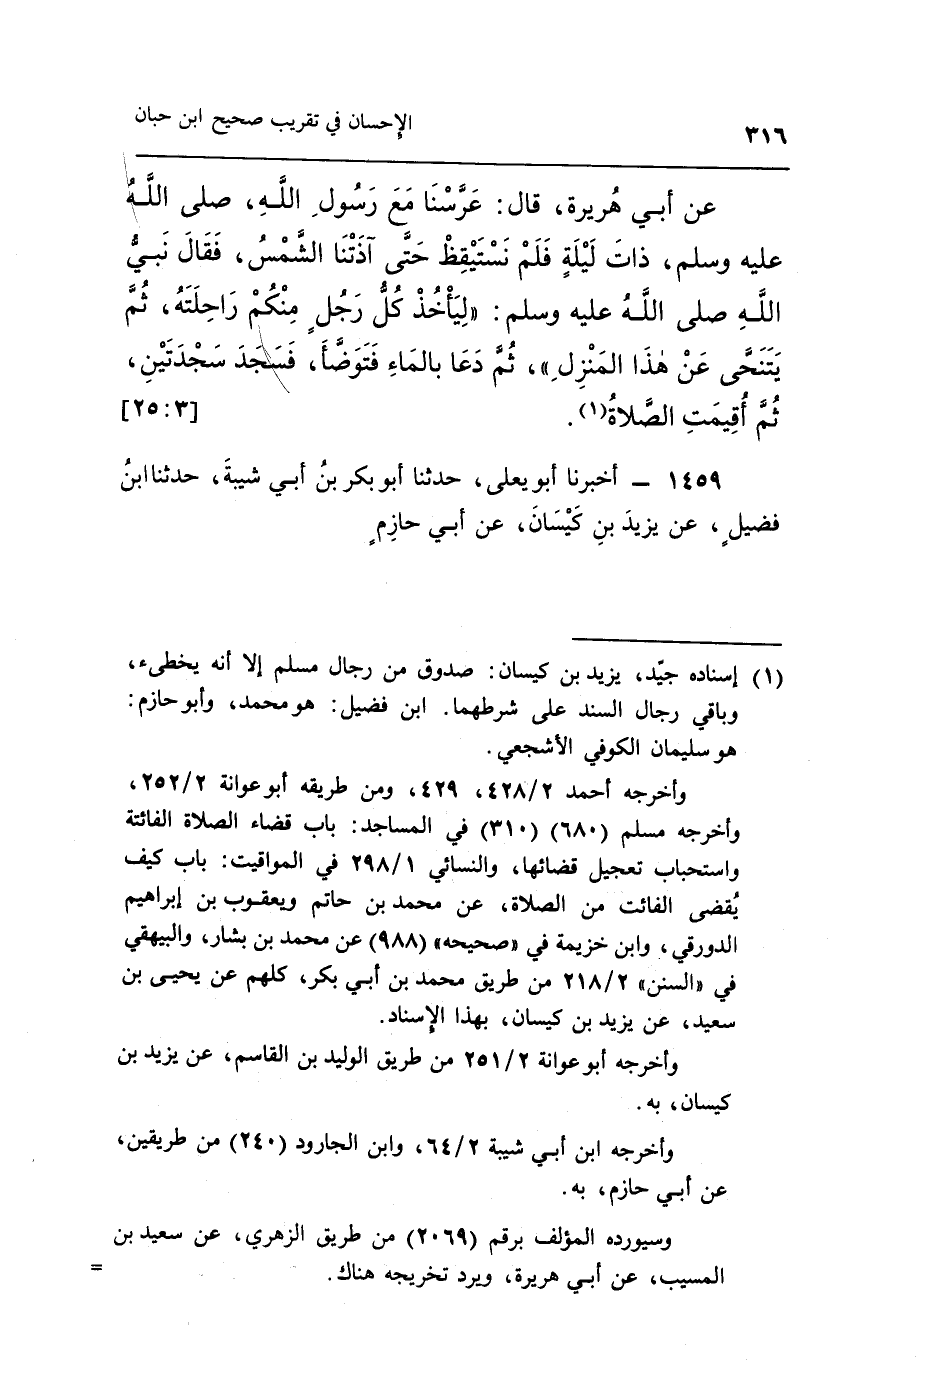 ٣١٦ الإحسان في تقريب صحيح ابن حبان
عن أبي هُريرة، قال: عَرَّسْنَا مَعَ رَسُولِ اللَّهِ، صلى اللَّهُ
عليه وسلم، ذاتَ لَيْلَةٍ فَلَمْ نَسْتَيْقِظْ حَتَّى آذَتْنَا الشَّمْسُ، فَقَالَ نَبِيُّ
اللَّهِ صلى اللَّهُ عليه وسلم: «لِيَأْخُذْ كُلُّ رَجُلٍ مِنْكُمْ رَاحِلَتَهُ، ثُمَّ
يَتَنَحَّى عَنْ هٰذَا المَنْزِلِ»، ثُمَّ دَعَا بالمَاءِ فَتَوَضَّأَ، فَسَجَدَ سَجْدَتَيْنِ،
ثُمَّ أُقِيمَتِ الصَّلاةُ(١). [٣:٢٥]
١٤٥٩ ـ أخبرنا أبو يعلى، حدثنا أبو بكر بنُ أبي شيبةَ، حدثنا ابنُ
فضيلٍ، عن يزيدَ بنِ كَيْسَانَ، عن أبي حازِمٍ
(١) إسناده جيّد، يزيد بن كيسان: صدوق من رجال مسلم إلا أنه يخطىء،
وباقي رجال السند على شرطهما. ابن فضيل: هو محمد، وأبو حازم:
هو سليمان الكوفي الأشجعي.
وأخرجه أحمد ٤٢٨/٢، ٤٢٩، ومن طريقه أبو عوانة ٢٥٢/٢،
وأخرجه مسلم (٦٨٠) (٣١٠) في المساجد: باب قضاء الصلاة الفائتة
واستحباب تعجيل قضائها، والنسائي ٢٩٨/١ في المواقيت: باب كيف
يُقضى الفائت من الصلاة، عن محمد بن حاتم ويعقوب بن إبراهيم
الدورقي، وابن خزيمة في «صحيحه» (٩٨٨) عن محمد بن بشار، والبيهقي
في «السنن» ٢١٨/٢ من طريق محمد بن أبي بكر، كلهم عن يحيى بن
سعيد، عن يزيد بن كيسان، بهذا الإسناد.
وأخرجه أبو عوانة ٢٥١/٢ من طريق الوليد بن القاسم، عن يزيد بن
كيسان، به.
وأخرجه ابن أبي شيبة ٦٤/٢، وابن الجارود (٢٤٠) من طريقين،
عن أبي حازم، به.
وسيورده المؤلف برقم (٢٠٦٩) من طريق الزهري، عن سعيد بن
المسيب، عن أبي هريرة، ويرد تخريجه هناك. =